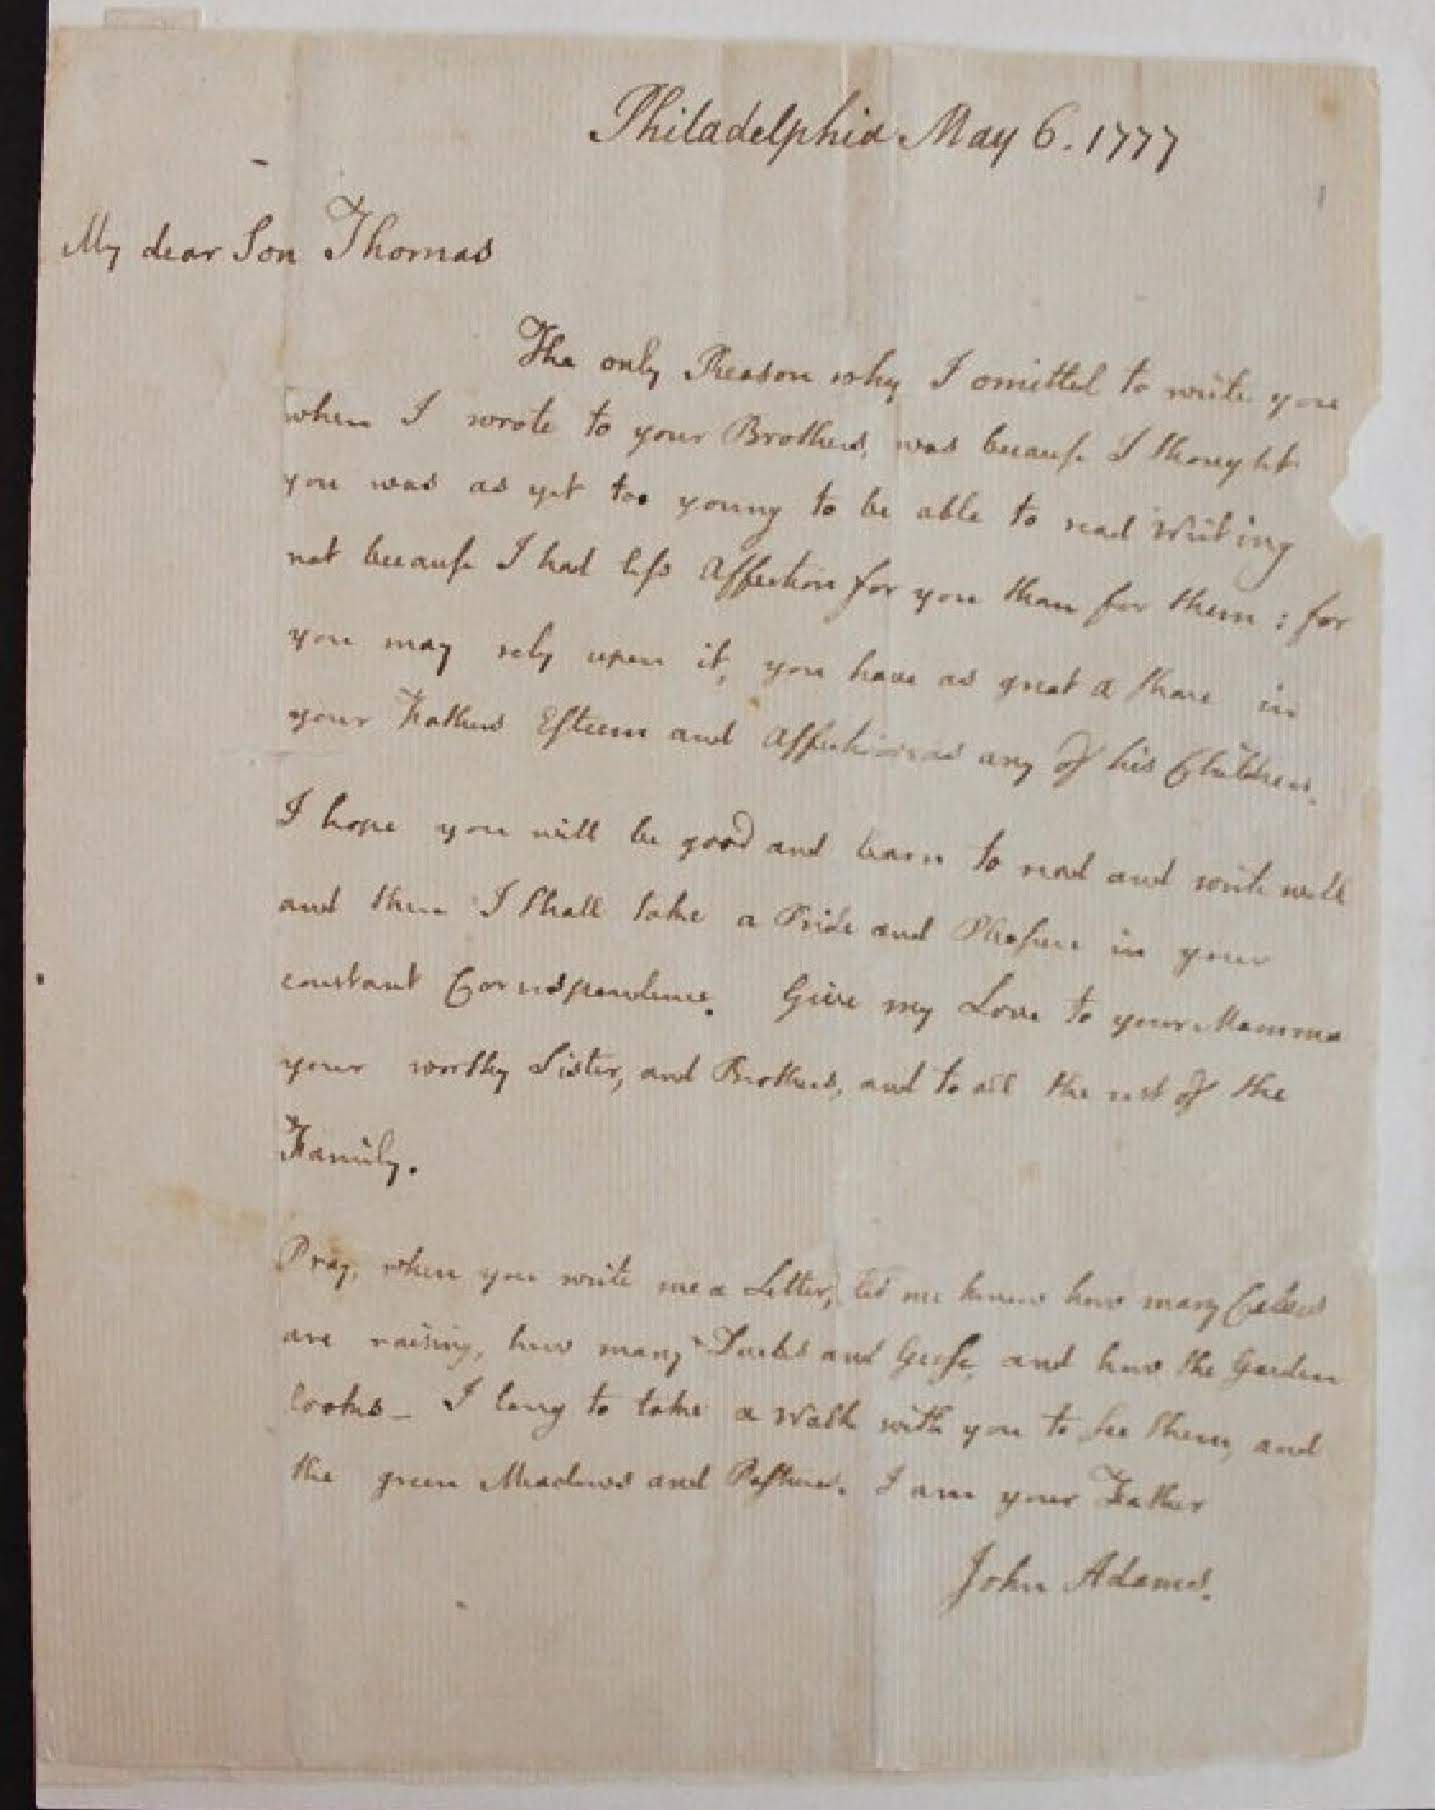 Philadelphia May 6. 1777
My dear Son Thomas
The only Reason why I omitted to write you
when I wrote to your Brothers, was because I thought
you was as yet too young to be able to read Writing
not because I had less Affection for you than for them: for
you may rely upon it, you have as great a share in
your Fathers Esteem and Affection as any of his Children.
I hope you will be good and learn to read and write well
and then I shall take a Pride and Pleasure in your
constant Correspondence. Give my Love to your Mamma
your worthy Sister, and Brothers, and to all the rest of the
Family.
Pray, when you write me a Letter, let me know how many Calves
are raising, how many Ducks and Geese, and how the Garden
looks— I long to take a Walk with you to see them, and
the green Meadows and Pastures. I am your Father
John Adams.